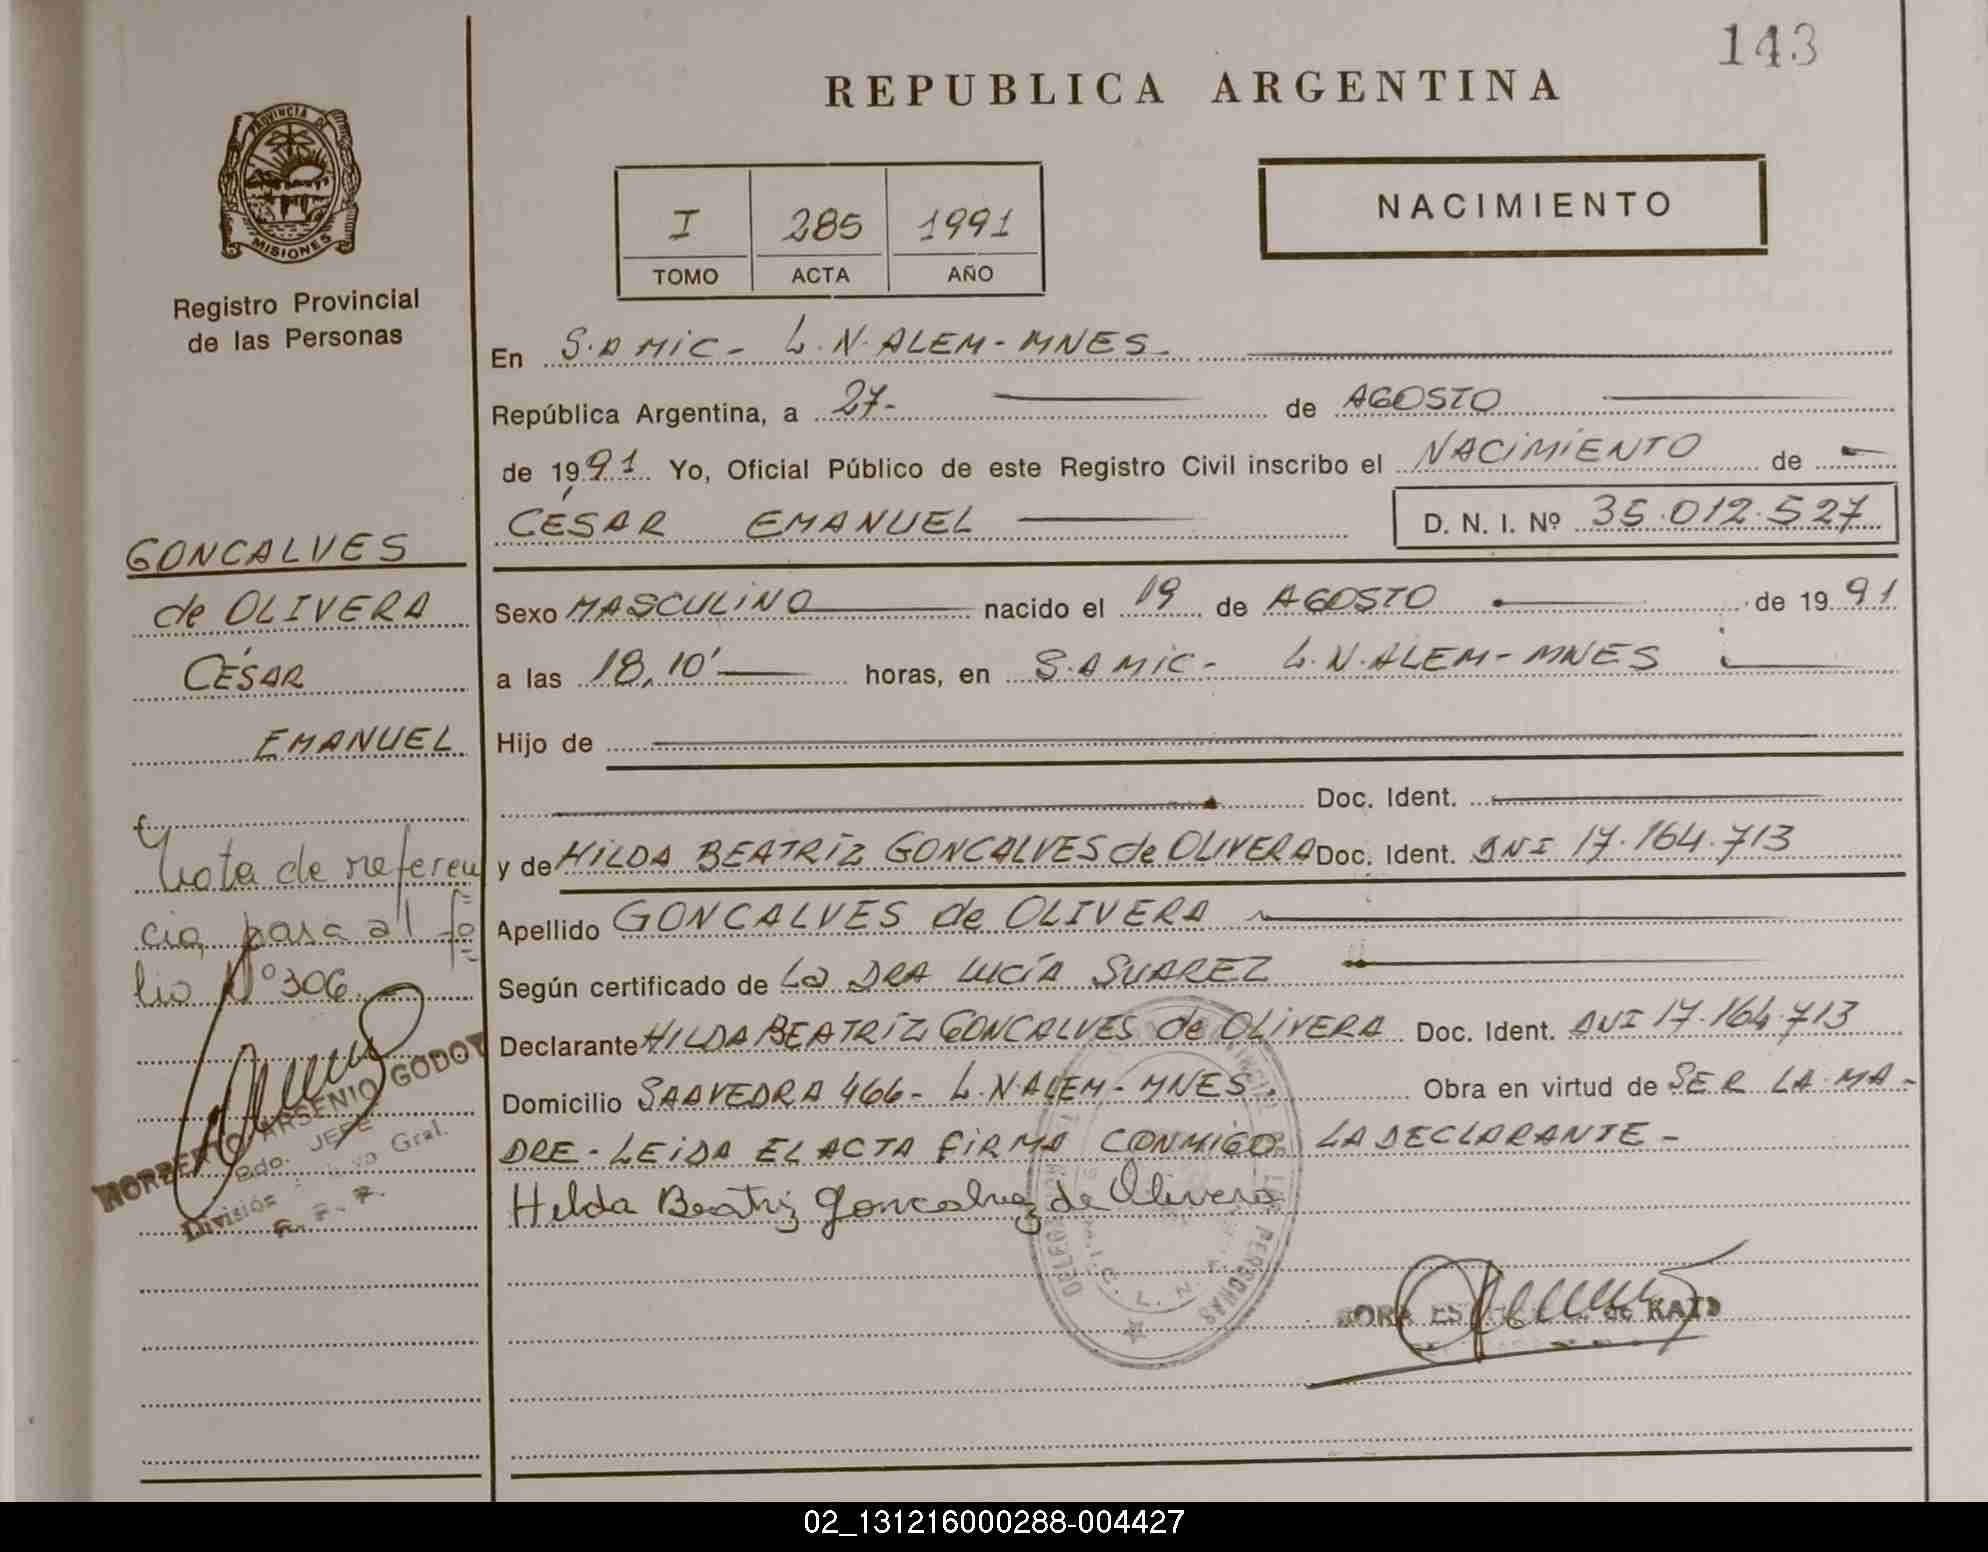 143
REPUBLICA ARGENTINA
PROVINCIA DE
MISIONES
Registro Provincial
de las Personas
I 285 1991
TOMO ACTA AÑO
NACIMIENTO
En S.A MIC- L.N.ALEM-MNES-
República Argentina, a 27- de AGOSTO
de 1991 Yo, Oficial Público de este Registro Civil inscribo el NACIMIENTO de
CÉSAR EMANUEL D. N. I. Nº 35.012.527
GONCALVES
de OLIVERA
CÉSAR
EMANUEL
Sexo MASCULINO nacido el 19 de AGOSTO de 1991
a las 18,10' horas, en S.A MIC- L.N.ALEM-MNES
Hijo de
Doc. Ident.
y de HILDA BEATRÍZ GONCALVES de OLIVERA Doc. Ident. DNI 17.164.713
Apellido GONCALVES de OLIVERA
Según certificado de La DRA LUCÍA SUAREZ
Declarante HILDA BEATRÍZ GONCALVES de OLIVERA Doc. Ident. DNI 17.164.713
Domicilio SAAVEDRA 466- L.N.ALEM-MNES. Obra en virtud de SER LA MA-
DRE-LEIDA EL ACTA FIRMA CONMIGO LA DECLARANTE-
Hilda Beatriz Goncalvez de Olivera
Nota de referen
cia, pasa al fo
lio Nº 306.
NORBERTO ARSENIO GODOY
JEFE
División Gral.
PERSONAS
de KAID
02_131216000288-004427